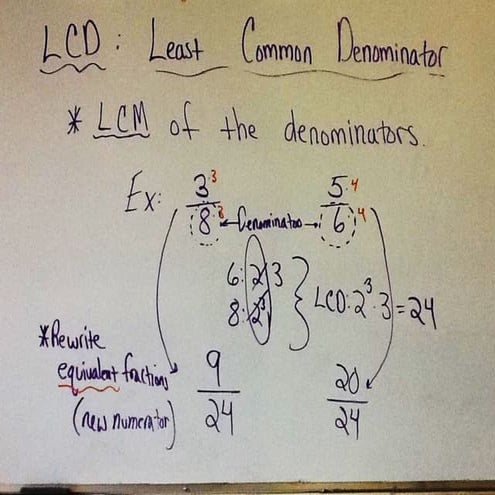 LCD: Least Common Denominator
* LCM of the denominators.
Ex: 3·3 5·4
8·3 ← Denominator → 6·4
6: 2·3
8: 2³
LCD: 2³·3 = 24
*Rewrite
equivalent fractions
(new numerator)
9 20
24 24